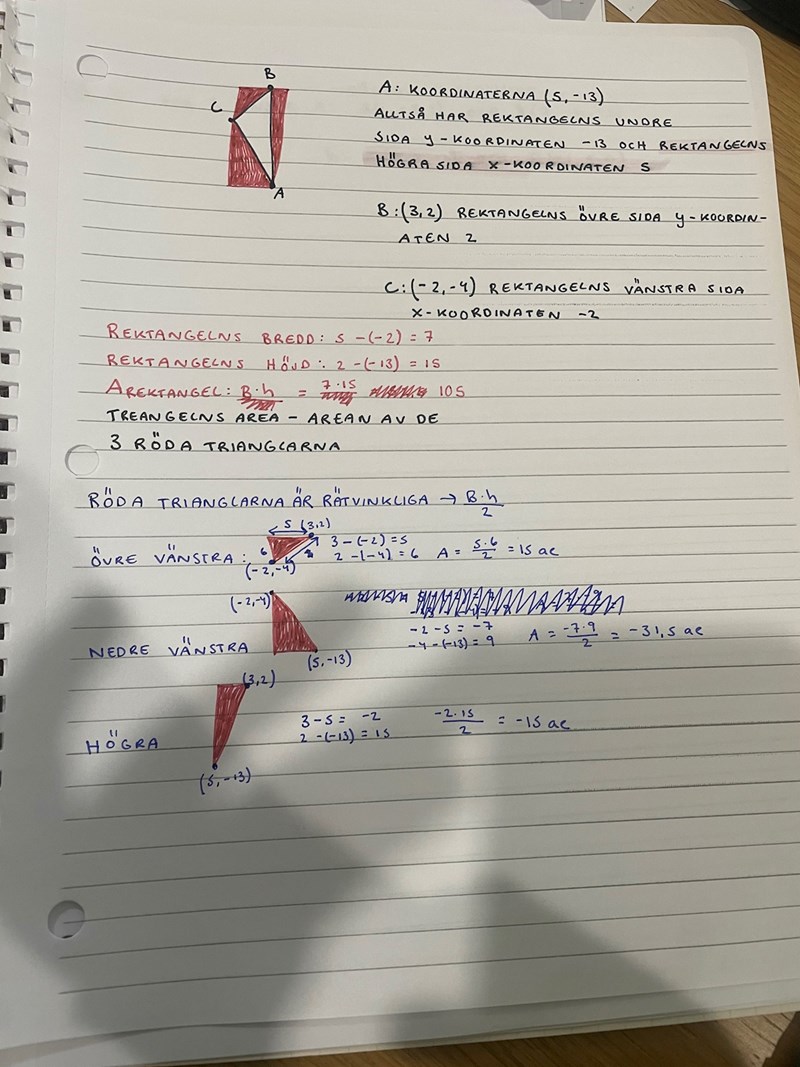 B
C
A
A: KOORDINATERNA (5,-13)
ALLTSÅ HAR REKTANGELNS UNDRE
SIDA Y-KOORDINATEN -13 OCH REKTANGELNS
HÖGRA SIDA X-KOORDINATEN 5
B:(3,2) REKTANGELNS ÖVRE SIDA Y-KOORDIN-
ATEN 2
C:(-2,-4) REKTANGELNS VÄNSTRA SIDA
X-KOORDINATEN -2
REKTANGELNS BREDD: 5-(-2)=7
REKTANGELNS HÖJD: 2-(-13)=15
AREKTANGEL: B·h = 7·15 105
TREANGELNS AREA - AREAN AV DE
3 RÖDA TRIANGLARNA
RÖDA TRIANGLARNA ÄR RÄTVINKLIGA → B·h/2
ÖVRE VÄNSTRA: 5 (3,2) 6 (-2,-4)
3-(-2)=5
2-(-4)=6 A = 5·6/2 = 15 ae
NEDRE VÄNSTRA (-2,-4) (5,-13)
-2-5 = -7
-4-(-13)=9 A = -7·9/2 = -31,5 ae
HÖGRA (3,2) (5,-13)
3-5= -2
2-(-13)=15 -2·15/2 = -15 ae